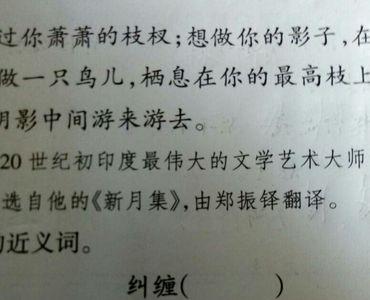 过你萧萧的枝杈；想做你的影子，在
做一只鸟儿，栖息在你的最高枝上
阴影中间游来游去。
20世纪初印度最伟大的文学艺术大师
选自他的《新月集》，由郑振铎翻译。
的近义词。
纠缠(　　　)